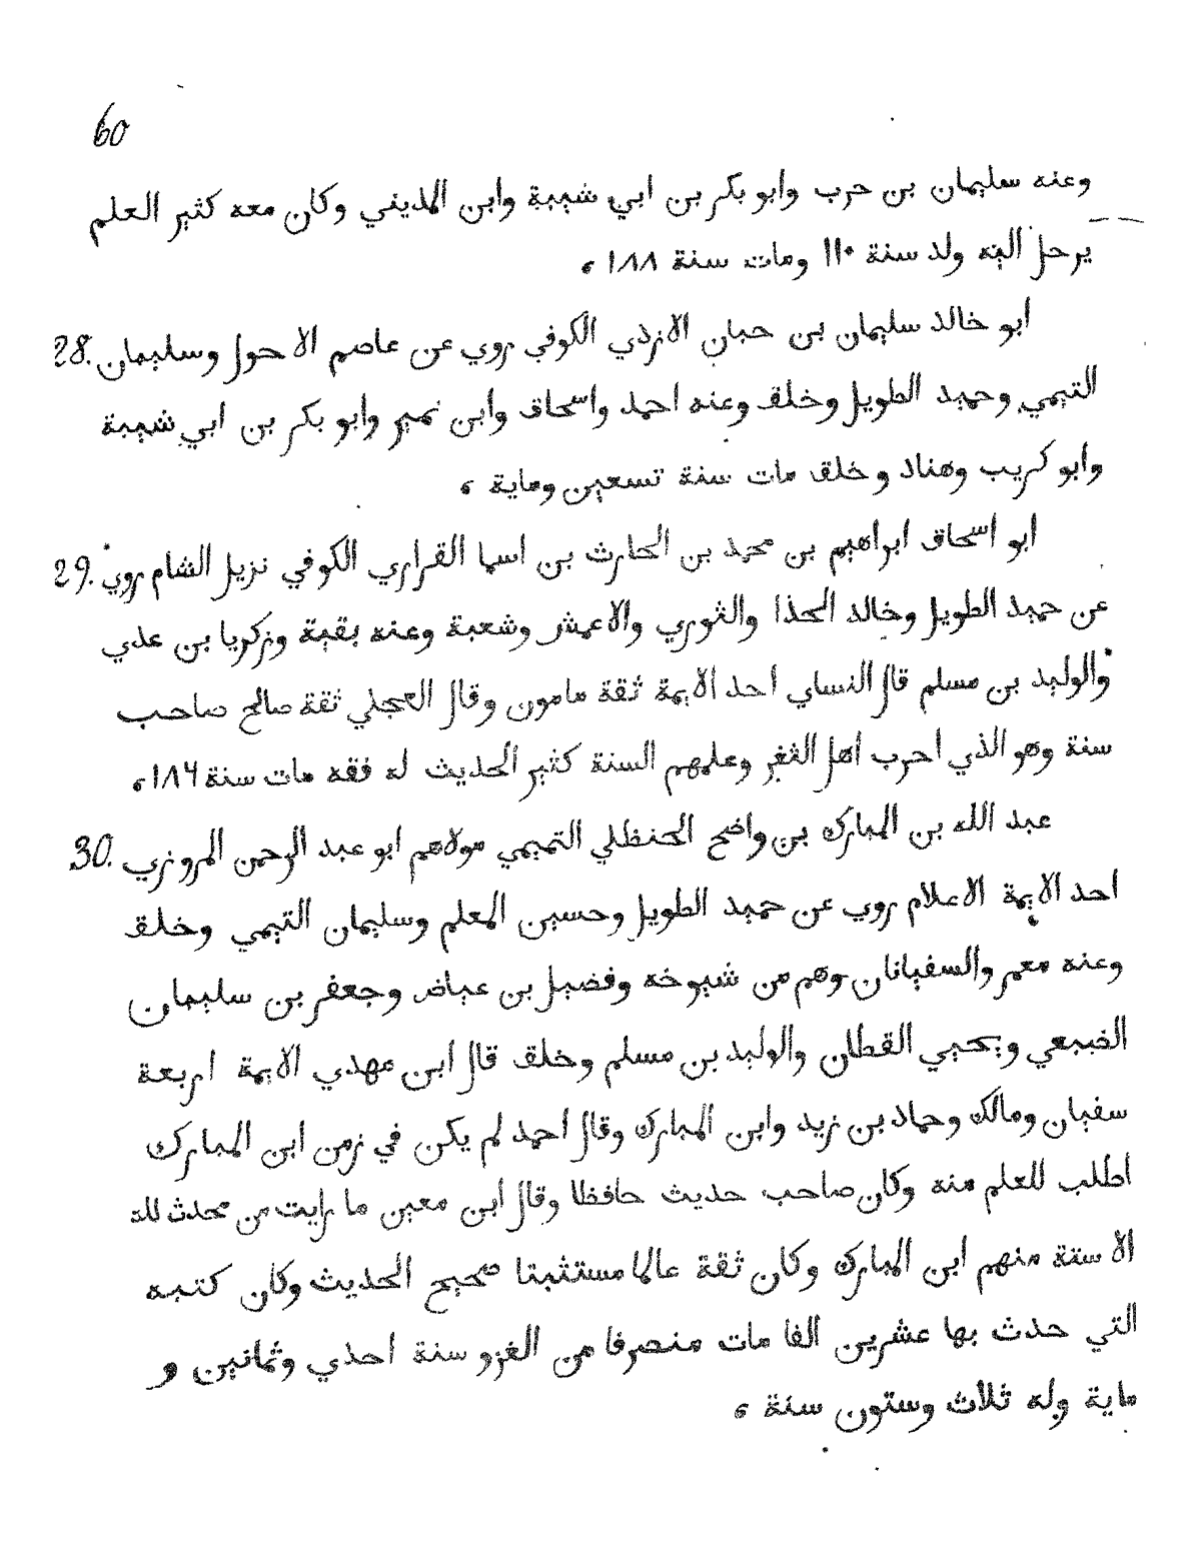 60
وعنه سليمان بن حرب وابو بكر بن ابي شيبة وابن المديني وكان معه كثير العلم
يرحل اليه ولد سنة ١١٠ ومات سنة ١٨٨ ،
28. ابو خالد سليمان بن حبان الازدي الكوفي روي عن عاصم الاحول وسليمان
التيمي وحميد الطويل وخلف وعنه احمد واسحاق وابن نمير وابو بكر بن ابي شيبة
وابو كريب وهناد وخلق مات سنة تسعين وماية ،
29. ابو اسحاق ابراهيم بن محمد بن الحارث بن اسما القراري الكوفي نزيل الشام روي
عن حميد الطويل وخالد الحذا والثوري والاعمش وشعبة وعنه بقية وزكريا بن عدي
والوليد بن مسلم قال النساي احد الايمة ثقة مامون وقال العجلي ثقة صالح صاحب
سنة وهو الذي احرب اهل الثغر وعلمهم السنة كثير الحديث له فقه مات سنة ١٨٦ ،
30. عبد الله بن المبارك بن واضح الحنظلي التميمي مولاهم ابو عبد الرحمن المروزي
احد الايمة الاعلام روي عن حميد الطويل وحسين المعلم وسليمان التيمي وخلق
وعنه معمر والسفيانان وهم من شيوخه وفضيل بن عياض وجعفر بن سليمان
الضبعي ويحيي القطان والوليد بن مسلم وخلق قال ابن مهدي الايمة اربعة
سفيان ومالك وحماد بن زيد وابن المبارك وقال احمد لم يكن في زمن ابن المبارك
اطلب للعلم منه وكان صاحب حديث حافظا وقال ابن معين ما رايت من محدث لله
الا ستة منهم ابن المبارك وكان ثقة عالما مستثبتا صحيح الحديث وكان كتبه
التي حدث بها عشرين الفا مات منصرفا من الغزو سنة احدي وثمانين و
ماية وله ثلاث وستون سنة ،